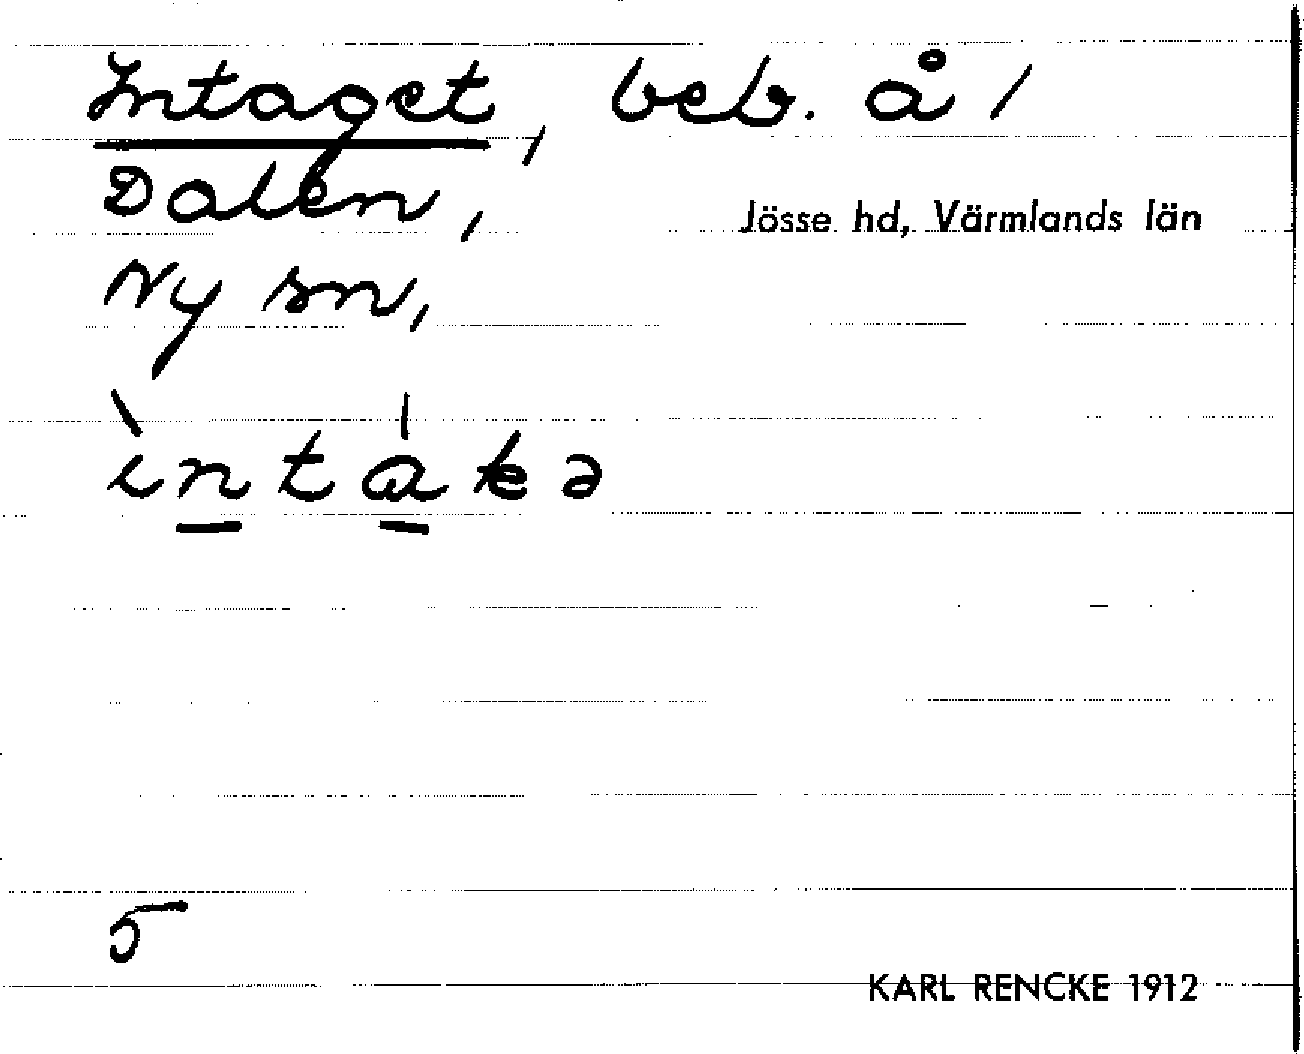 Intaget, beb. å /
Dalen,
Jösse hd, Värmlands län
Ny sn,
ìntákə
5
KARL RENCKE 1912